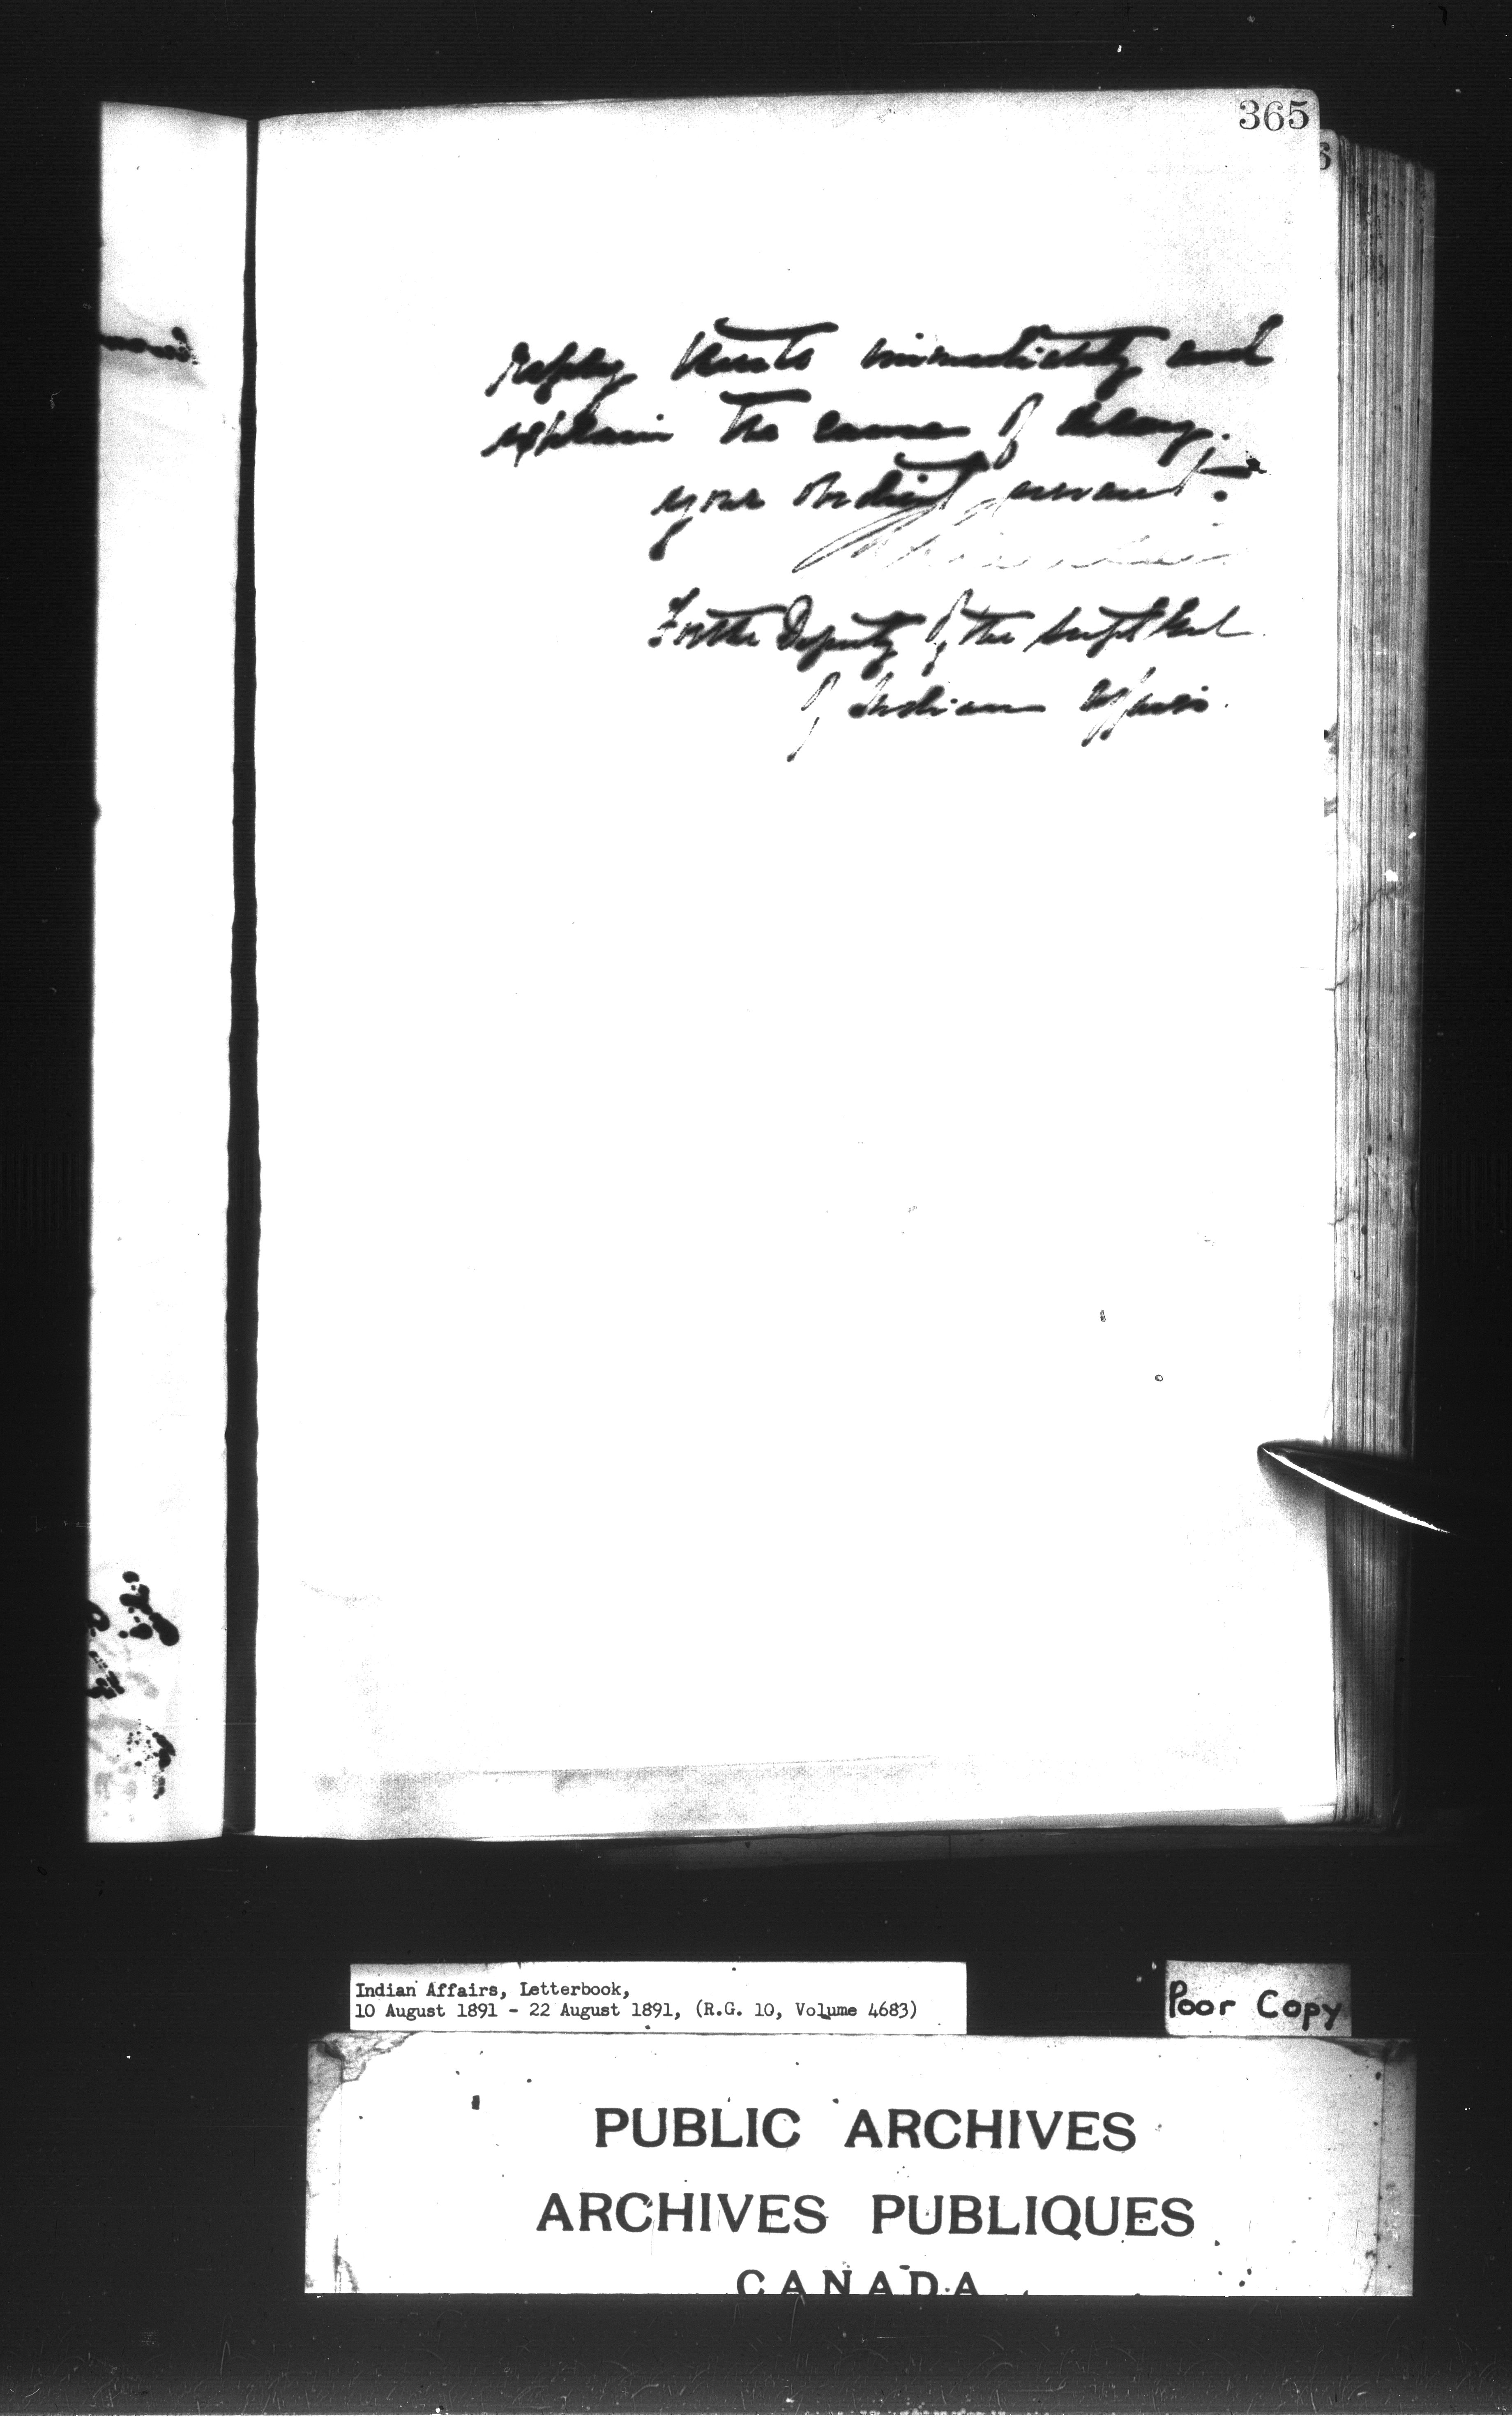 365
reply thereto immediately and
explain the cause of delay.
your obedient servant.
For the Deputy of the Supt Genl
of Indian Affairs.
Indian Affairs, Letterbook,
10 August 1891 - 22 August 1891, (R.G. 10, Volume 4683)
Poor Copy
PUBLIC ARCHIVES
ARCHIVES PUBLIQUES
CANADA